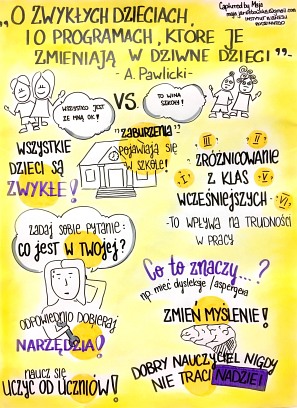 „O ZWYKŁYCH DZIECIACH,
I O PROGRAMACH, KTÓRE JE
ZMIENIAJĄ W DZIWNE DZIECI"
- A. Pawlicki -
Captured by Maja
WSZYSTKO JEST
ZE MNĄ OK!
VS.
TO WINA
SZKOŁY!
WSZYSTKIE
DZIECI SĄ
ZWYKŁE!
"ZABURZENIA"
POJAWIAJĄ SIĘ
W SZKOLE!
I II III V VI
ZRÓŻNICOWANIE
Z KLAS
WCZEŚNIEJSZYCH
-TO WPŁYWA NA TRUDNOŚCI
W PRACY
ZADAJ SOBIE PYTANIE:
CO JEST W TWOJEJ?
Co to znaczy...?
np. mieć dysleksję /aspergera
ODPOWIEDNIO DOBIERAJ
NARZĘDZIA!
ZMIEŃ MYŚLENIE!
NAUCZ SIĘ
UCZYĆ OD UCZNIÓW!
DOBRY NAUCZYCIEL NIGDY
NIE TRACI NADZIEI